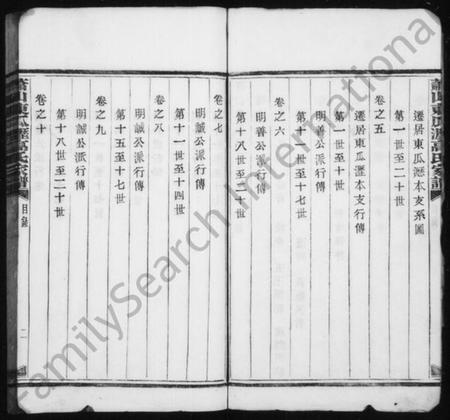 遷居東瓜瀝本支系圖
第一世至二十世
卷之五
遷居東瓜瀝本支行傳
第一世至十世
卷之六
明善公派行傳
第十一世至十七世
第十八世至二十世
卷之七
明誠公派行傳
第十一世至十四世
卷之八
明誠公派行傳
第十五至十七世
卷之九
明誠公派行傳
第十八世至二十世
卷之十
蕭山東瓜瀝高氏家譜
目錄
二
FamilySearch International